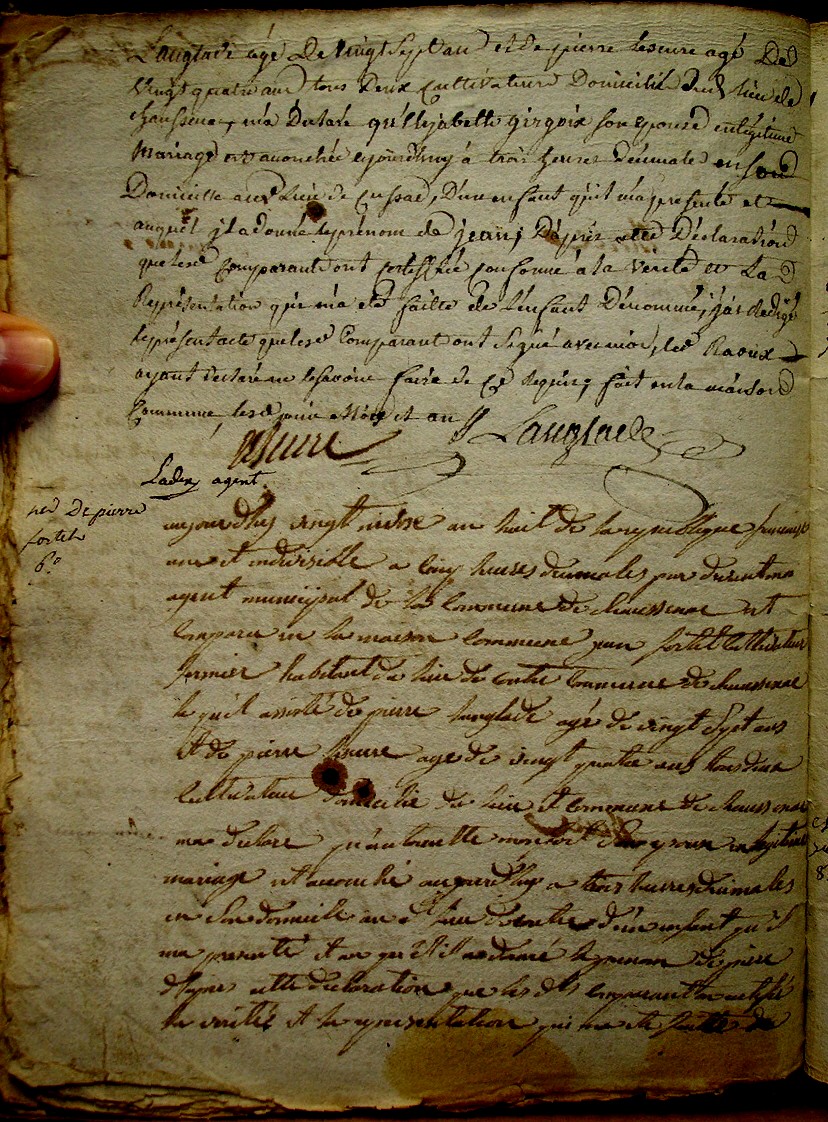 Langlade agé De vingt sept ans et De pierre lesmre agé De
vingt quatre ans tous Deux Cultivateurs Domicilié Dud. lieu de
chaussenac, m'a Declaré qu'Elizabette girgoix son Epouse en légitime
Mariage est accouchée ejourdhuy à trois heures décimale en son
Domicille aud. lieu de Cussac, D'un enfant qu'il m'a presenté et
auquel jl a donné le prénom de jean; D'apres cette Déclaration
que lesd. Comparants ont certiffiée conforme à la vérité et La
Représentation qui m'a eté faitte de L'enfant Dénommé, j'ai Redigé
le présent acte que lesd. Comparant ont signé avec moi, led. Raoux
ayant declaré ne le savoir faire de ce Requis, fait en la maison
Commune, lesd. jour Mois et an
Langlade
agent
né De pierre
fortet
6e
aujourdhuy vingt an huit de la republique francaise
une et indivisible a cinq heures decimales par devant moi
agent municipal de la Commune de chaussenac est
comparu en la maison Commune jean fortet Cultivateur
fermier habitant du lieu de Commune de chaussenac
lequel assisté de pierre langlade agé de vingt sept ans
et de pierre agé de vingt quatre ans tous deux
Cultivateur domicilié du lieu et Commune de chaussenac
ma declaré son epouse en legitime
mariage est accouché aujourdhuy a trois heures decimales
en son domicile au d. lieu d'un enfant qu'il
ma presenté et au quel il a donné le prenom de pierre
d'apres cette declaration que les dts comparant on certifié
la verité et la representation qui ma ete faitte de